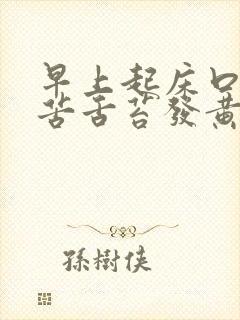 早上起床口
苦舌苔發黃
孫樹俠